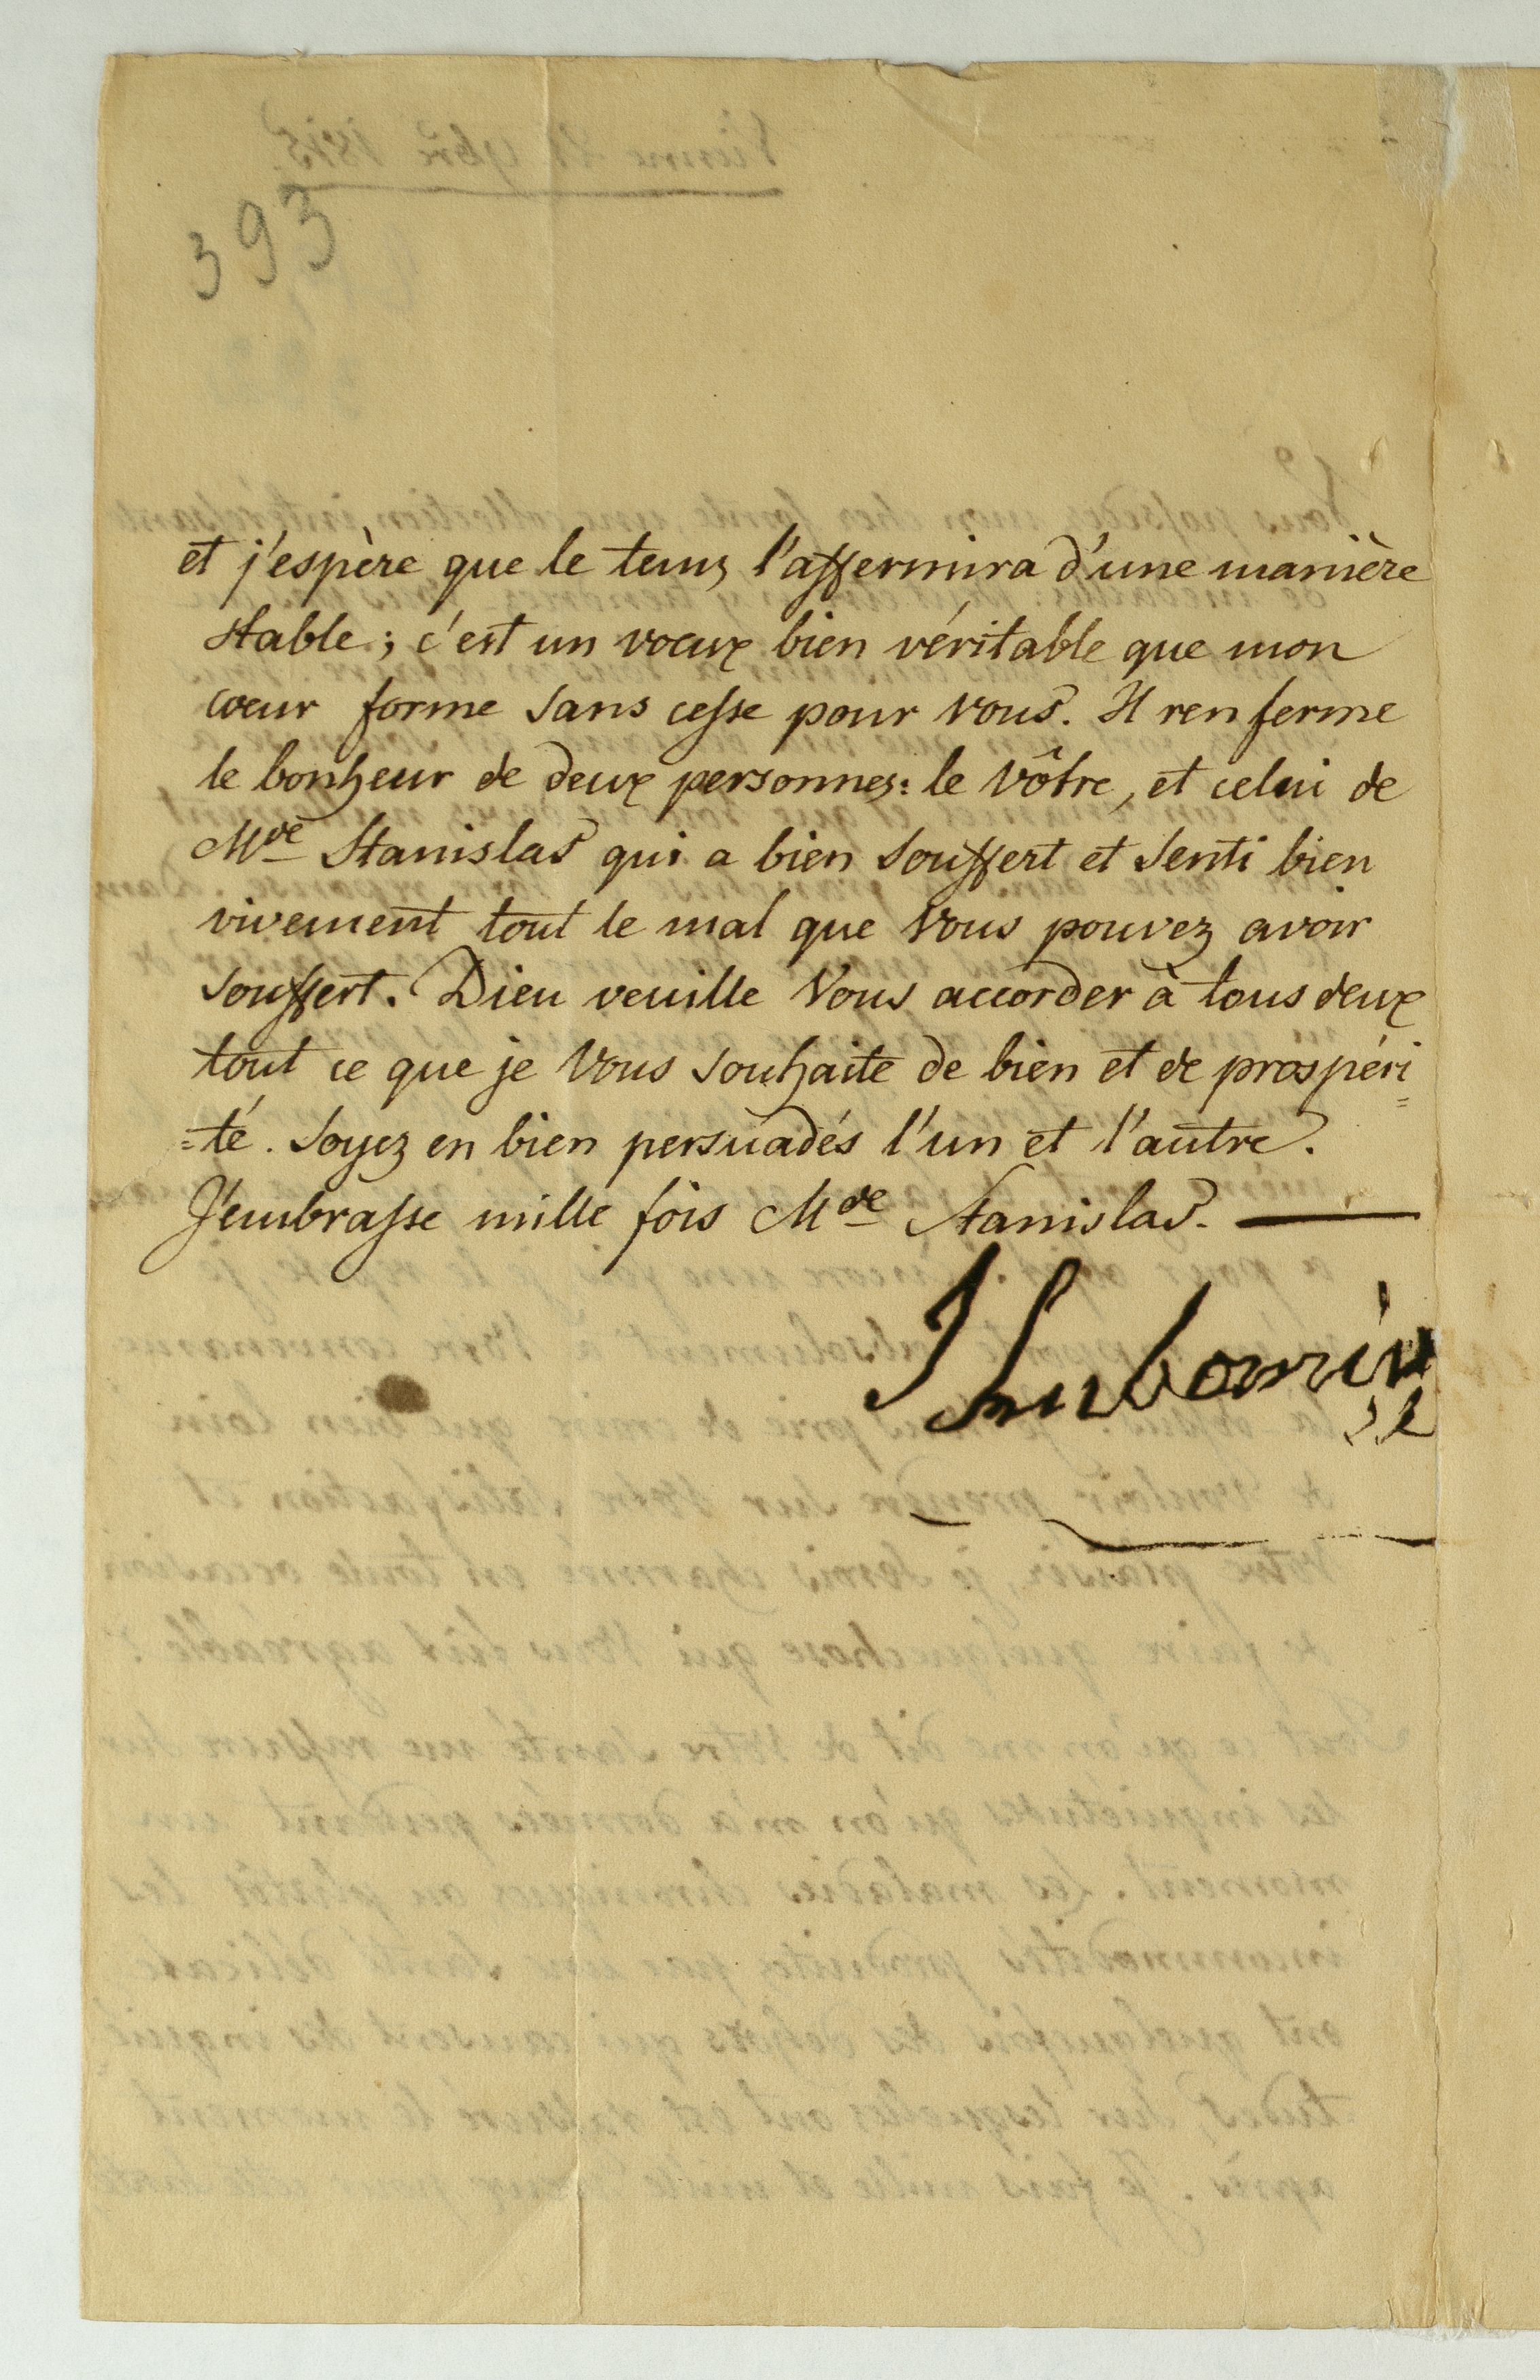 393
et j'espère que le tems l'affermira d'une manière
stable; c'est un voeux bien véritable que mon
coeur forme sans cesse pour vous. Il renferme
le bonheur de deux personnes: le vôtre, et celui de
Mde Stanislas qui a bien souffert et senti bien
vivement tout le mal que vous pouvez avoir
souffert. Dieu veuille vous accorder à tous deux
tout ce que je vous souhaite de bien et de prospéri=
=té. Soyez en bien persuadés l'un et l'autre.
J'embrasse mille fois Mde Stanislas.